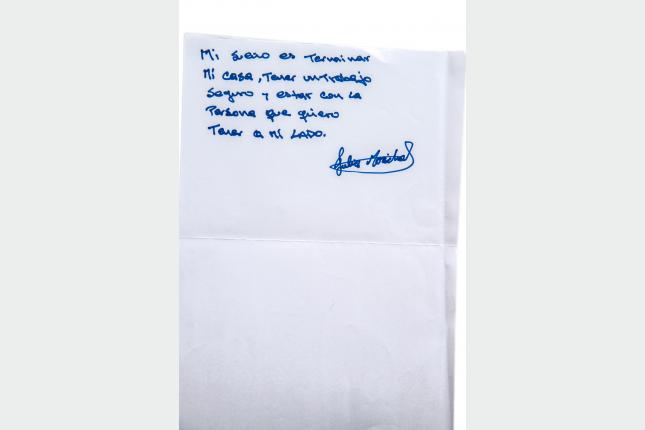 Mi sueño es Terminar
Mi casa, Tener un Trabajo
Seguro y estar con la
Persona que quiero
Tener a Mi LADO.